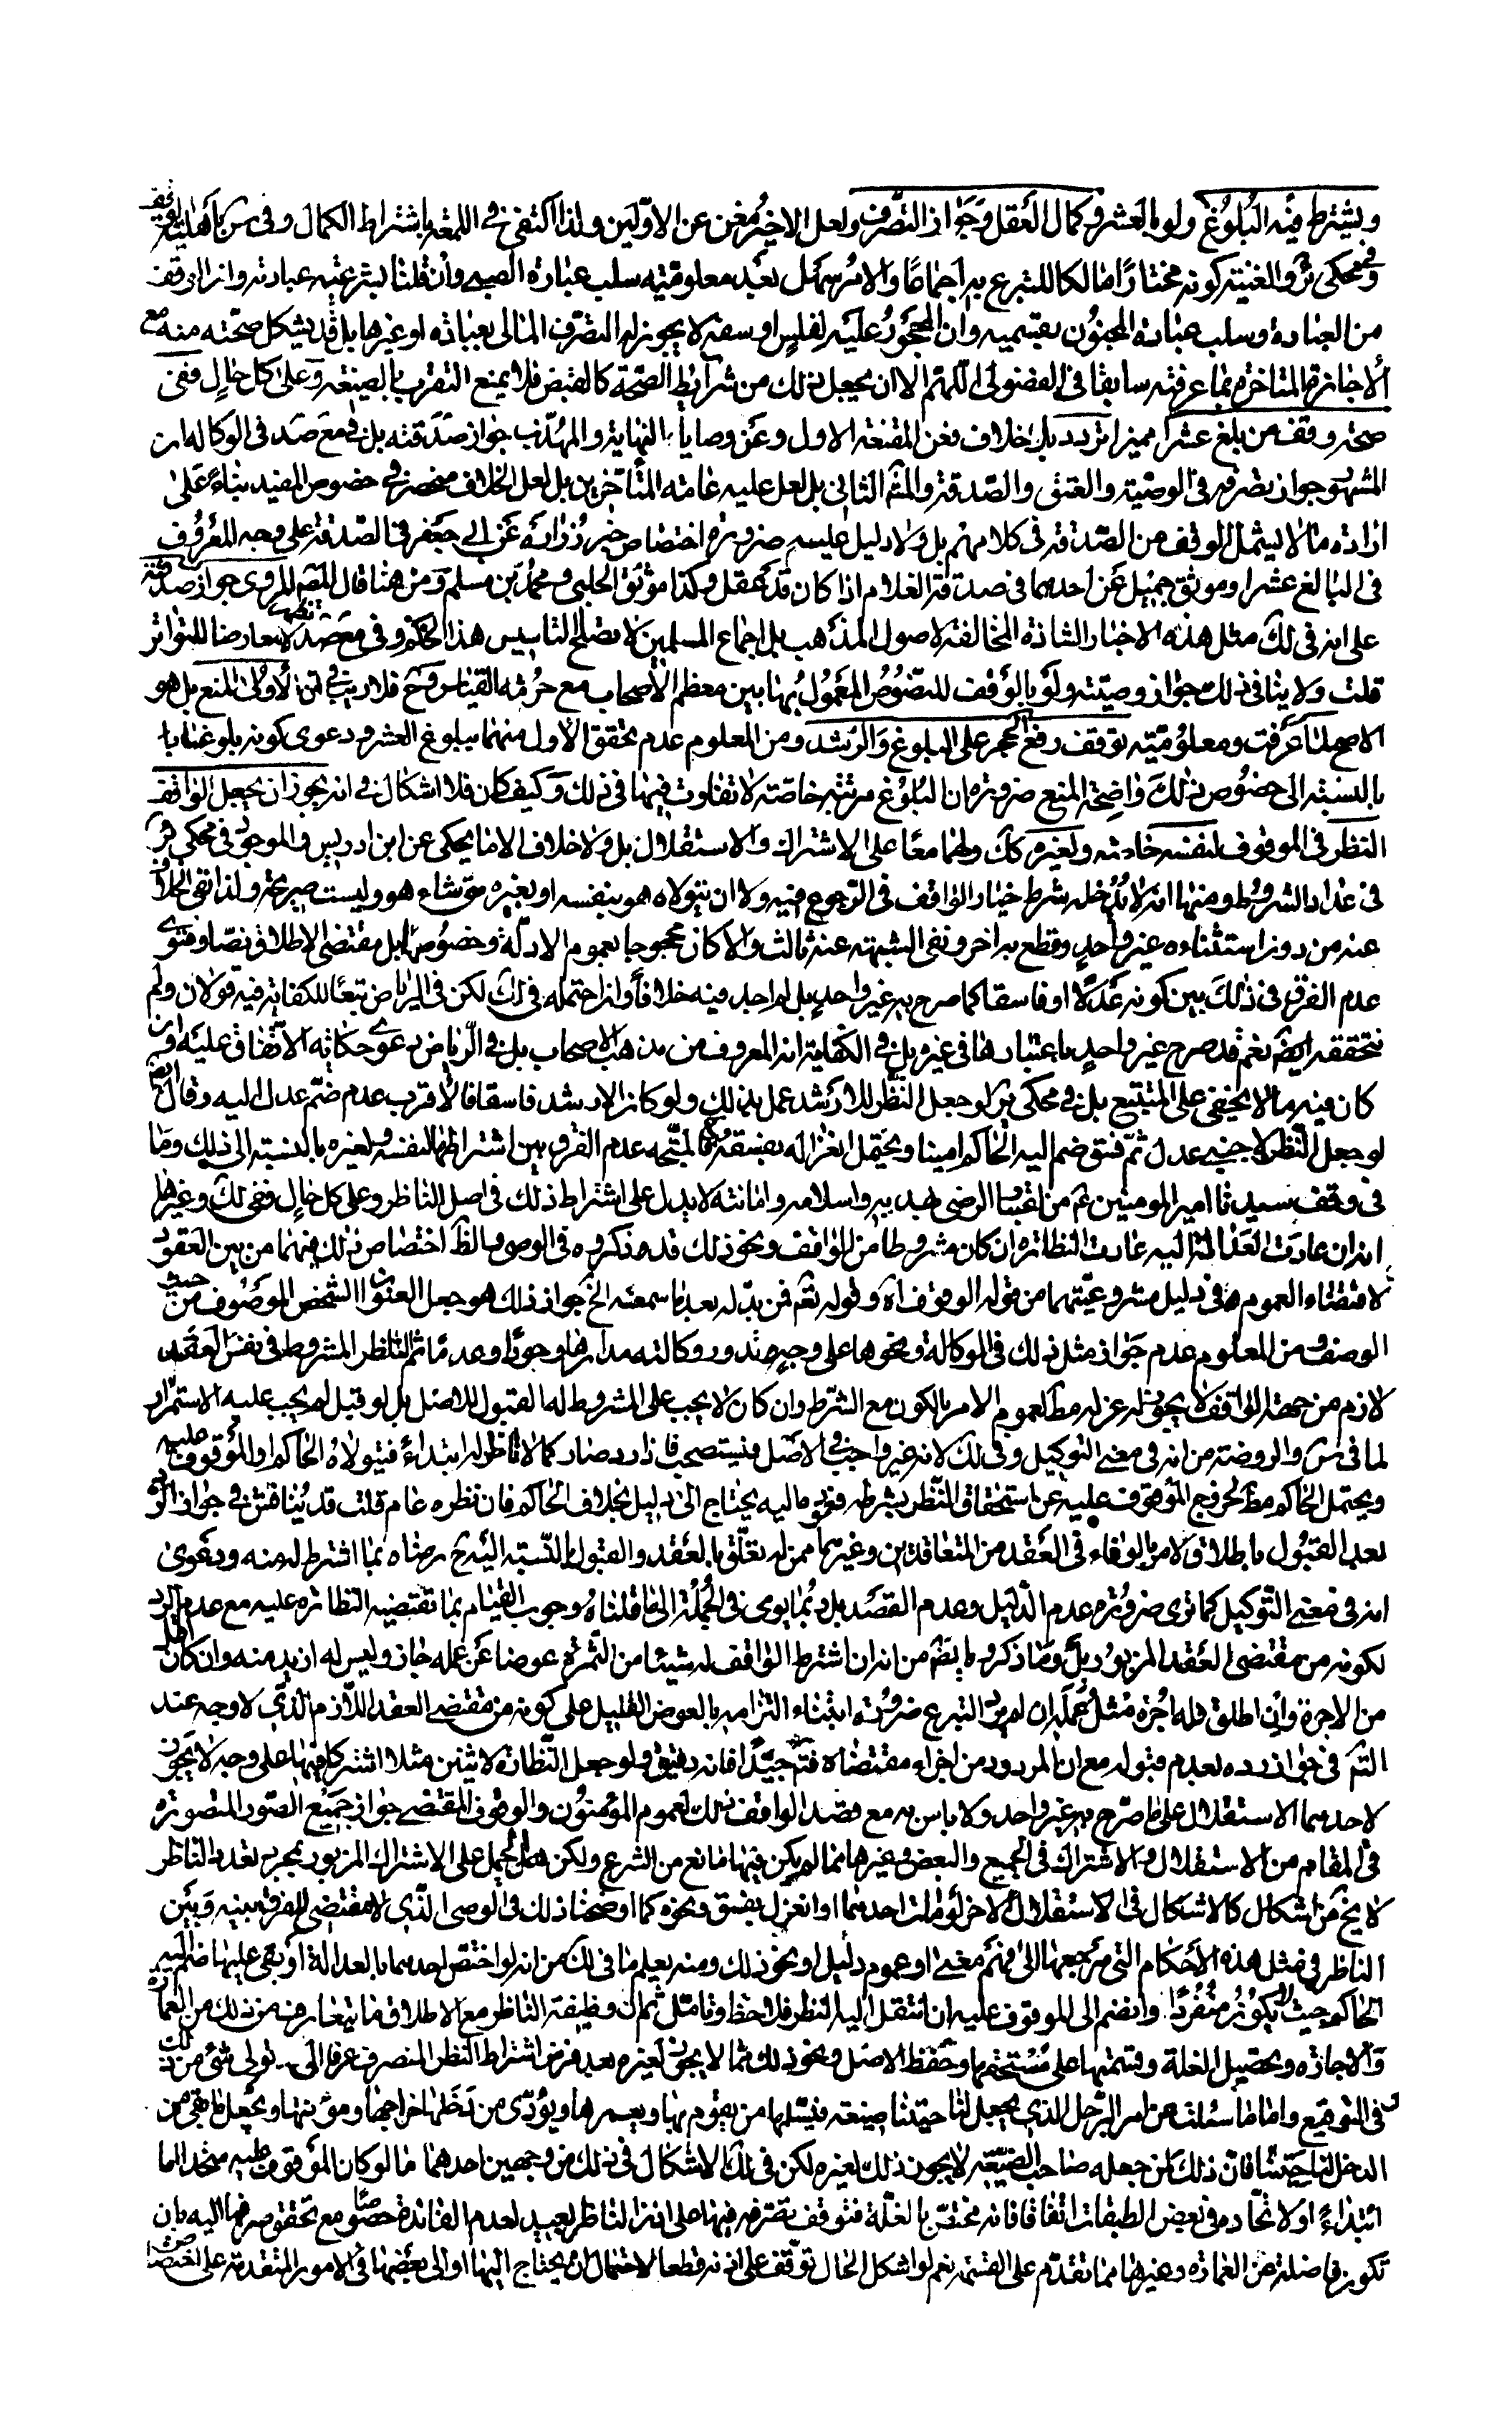 ويشترط فيه البلوغ ولو بالعشر وكمال العقل وجواز التصرف ولعل الاخير مغن عن الاولين ولذا اكتفى في اللمعة باشتراط الكمال وفي س باهلية الواقف
وفي محكي ئر والغنية كونه مختارا مالكا للتبرع به اجماعا والامر سهل بعد معلومية سلب عبارة الصبي وان قلنا بشرعية عباداته وان الوقف
من العبادة وسلب عبارة المجنون بقسميه وان المحجور عليه لفلس او سفه لا يجوز له التصرف المالي بعبادة او غيرها بل قد يشكل صحته منه مع
الاجازة المتاخرة بما عرفته سابقا في الفضولي اللهم الا ان يجعل ذلك من شرائط الصحة كالقبض فلا يمنع التقرب بالصيغة وعلى كل حال ففي
صحة وقف من بلغ عشرا مميزا تردد بل خلاف فعن المقنعة الاول وعن وصايا النهاية والمهذب جواز صدقته بل في مع صد في الوكالة ان
المشهور جواز تصرفه في الوصية والعتق والصدقة والمشهم الثاني بل لعل عليه عامة المتاخرين بل لعل الخلاف منحصر في خصوص المفيد بناء على
ارادة ما لا يشمل الوقف من الصدقة في كلامهم بل ولا دليل عليه ضرورة اختصاص خبر زرارة عن ابي جعفر في الصدقة على وجه المعروف
في البالغ عشرا وموثق جميل عن احدهما في صدقة الغلام اذا كان قد عقل وكذا موثق الحلبي ومحمد بن مسلم ومن هنا قال المص المروي جواز صدقته
على انه في لك مثل هذه الاخبار الشاذة المخالفة لاصول المذهب بل اجماع المسلمين لا تصلح لتاسيس هذا الحكم وفي مع صد لا تنهض معارضا للتواتر
قلت ولا ينافي ذلك جواز وصيته ولو بالوقف للنصوص المعمول بها بين معظم الاصحاب مع حرمة القياس وح فلا ريب في ان الاولى المنع بل هو
الاصح لما عرفت ومعلومية توقف رفع الحجر على البلوغ والرشد ومن المعلوم عدم تحقق الاول منهما ببلوغ العشر ودعوى كونه بلوغا
بالنسبة الى خصوص ذلك واضحة المنع ضرورة ان البلوغ مرتبة خاصة لا تفاوت فيها في ذلك وكيف كان فلا اشكال في انه يجوز ان يجعل الواقف
النظر في الموقوف لنفسه خاصة ولغيره كك ولهما معا على الاشتراك والاستقلال بل ولا خلاف الا ما يحكى عن ابن ادريس والموجود في محكي ئر
في عداد الشروط ومنها انه لا يدخله شرط خيار الواقف في الرجوع فيه ولا ان يتولاه هو بنفسه او بغيره متى شاء هو وليست صريحة ولذا نفى الخلاف
عنه من دون استثناءه غير واحد وقطع به اخر ونفى الشبهة عنه ثالث والا كان محجوجا بعموم الادلة وخصوصها بل مقتضى الاطلاق نصا وفتوى
عدم الفرق في ذلك بين كونه عدلا او فاسقا كما صرح به غير واحد بل لم اجد فيه خلافا وان احتمله في لك لكن في الرياض تبعا للكفاية فيه قولان ولم
نتحققه ايضا نعم قد صرح غير واحد باعتبارها في غيره بل في الكفاية انه المعروف من مذهب الاصحاب بل في الرياض دعوى حكاية الاتفاق عليه وان
كان فيه ما لا يخفى على المتتبع بل في محكي ير لو جعل النظر للارشد عمل بذلك ولو كان الارشد فاسقا فالاقرب عدم ضم عدل اليه وقال ايضا
لو جعل النظر لاجنبي عدل ثم فسق ضم اليه الحاكم امينا ويحتمل انعزاله بفسقه فالمتجه عدم الفرق بين اشتراطها لنفسه ولغيره بالنسبة الى ذلك وما
في وقف سيدنا امير المومنين ع من الرضى بهديه واسلامه وامانته لا يدل على اشتراط ذلك في اصل الناظر وعلى كل حال ففي لك وغيرها
انه ان عادت العدالة اليه عادت النظارة ان كان مشروطا من الواقف ونحو ذلك قد ذكروه في الوصي والظ اختصاص ذلك فيهما من بين العقود
لاقتضاء العموم في دليل مشروعيتهما من قوله الوقوف اه وقوله تعم فمن بدله بعد ما سمعه الخ جواز ذلك هو جعل العنوان الشخص الموصوف من حيث
الوصف ومن المعلوم عدم جواز مثل ذلك في الوكالة ونحوها على وجه تدور وكالته مدارها وجودا وعدما ثم الناظر المشروط في نفس العقد
لازم من جهة الواقف لا يجوز له عزله مط لعموم الامر بالكون مع الشرط وان كان لا يجب على المشروط له القبول للاصل بل لو قبل لم يجب عليه الاستمرار
لما في س والروضة من انه في معنى التوكيل وفي لك لانه غير واجب في الاصل فيستصحب فاذا رد صار كما لا ناظر له ابتداء فيتولاه الحاكم او الموقوف عليه
ويحتمل الحاكم مط لخروج الموقوف عليه عن استحقاق النظر بشرطه فعوده اليه يحتاج الى دليل بخلاف الحاكم فان نظره عام قلت قد يناقش في جواز الرد
بعد القبول باطلاق الامر بالوفاء في العقد من المتعاقدين وغيرهما ممن له تعلق بالعقد والقبول بالنسبة اليه ح رضاه بما اشترط له منه ودعوى
انه في معنى التوكيل كما ترى ضرورة عدم الدليل وعدم القصد بل ربما يومى في الجملة الى ما قلناه وجوب القيام بما تقتضيه النظارة عليه مع عدم الرد
لكونه من مقتضى العقد المزبور بل وما ذكروه ايضم من انه ان اشترط الواقف له شيئا من الثمرة عوضا عن عمله جاز وليس له ازيد منه وان كان اقل
من الاجرة وان اطلق فله اجرة مثل عمله ان لم ير التبرع ضرورة ابتناء التزامه بالعوض القليل على كونه من مقتضى العقد اللازم الذي لا وجه عند
التم في جواز رده لعدم قبوله مع ان المردود من اجزاء مقتضاه فتم جيدا فانه دقيق ولو جعل النظارة لاثنين مثلا اشتركا فيها على وجه لا يجوز
لاحدهما الاستقلال على ما صرح به غير واحد ولا باس به مع قصد الواقف ذلك لعموم المؤمنون والوقوف المقتضي جواز جميع الصور المتصورة
في المقام من الاستقلال والاشتراك في الجميع والبعض وغيرها مما لم يكن فيها مانع من الشرع ولكن هل الحمل على الاشتراك المزبور بمجرد تعدد الناظر
لا يخ من اشكال كالاشكال في الاستقلال الاخر لو مات احدهما او انعزل بفسق ونحوه كما اوضحنا ذلك في الوصي الذي لا مقتضى للفرق بينه وبين
الناظر في مثل هذه الاحكام التي مرجعها الى فهم معنى او عموم دليل او نحو ذلك ومنه يعلم ما في لك من انه لو اختص احدهما بالعدالة او بقي عليها ضم اليه
الحاكم حيث لا يكون منفردا وانضم الى الموقوف عليه ان انتقل اليه النظر فلاحظ وتامل ثم ان وظيفة الناظر مع الاطلاق ما يتعارف من ذلك من العمارة
والاجارة وتحصيل الغلة وقسمتها على مستحقها وحفظ الاصل ونحو ذلك مما لا يجوز لغيره بعد فرض اشتراط النظر المنصرف عرفا الى تولي شئ من ذلك
وفي التوقيع واما ما سئلت من امر الرجل الذي يجعل لناحيتنا ضيعة فيسلمها من يقوم بها ويعمرها ويؤدي من دخلها خراجها ومؤنتها ويجعل ما بقي من
الدخل لناحيتنا فان ذلك لمن جعله صاحب الضيعة لا يجوز ذلك لغيره لكن في لك الاشكال في ذلك من وجهين احدهما ما لو كان الموقوف عليه متحدا اما
ابتداءً او لاتحاده في بعض الطبقات اتفاقا فانه مختص بالغلة فتوقف تصرفه فيها على اذن الناظر بعيد لعدم الفائدة خصوصا مع تحقق صرفها اليه بان
تكون فاضلة عن العمارة وغيرها مما تقدم على القسمة نعم لو اشكل الحال توقف على اذنه قطعا لاحتمال ان يحتاج اليها او الى بعضها في الامور المتقدمة على